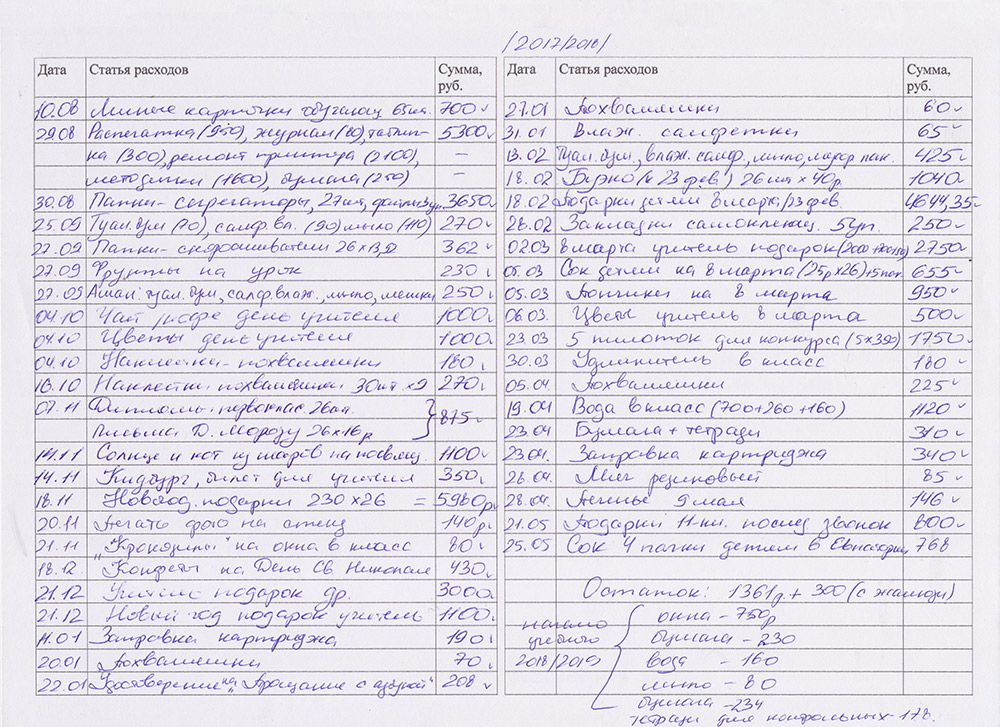 /2017/2018/
Дата Статья расходов Сумма, руб.
10.08 Личные карточки обучающ 65шт. 700
29.08 Распечатка (950), журнал (80), таблич-
ка (300), ремонт принтера (2100), –
методички (1600), бумага (250) – 5300
30.08 Папки- сегрегаторы, 27шт, файлы 3уп. 3650
25.09 Туал. бум (70), салф. вл. (90) мыло (110) 270
27.09 Папки- скоросшиватели 26х13,9 362
27.09 Фрукты на урок 230
27.09 туал. бум, салф. влаж., мыло, мешки 250
04.10 Чай кофе день учителя 1000
04.10 Цветы день учителя 1000
04.10 Наклейки- похвалюшки 180
16.10 Наклейки похвалюшки 30шт. х9 270
07.11 Дипломы. первоклас. 26шт.
Письма Д. Морозу 26х16р 875
14.11 Солнце и кот из шаров на посвящ. 1100
14.11 Кидбург, билет для учителя 350
18.11 Новогод. подарки 230х26 = 5980р
20.11 Печать фото на стенд 140р
21.11 на окна в класс 80
18.12 Конфеты на День Св. Николая 430
21.12 Учителю подарок др. 3000
21.12 Новый год подарок учителю 1100
11.01 Заправка картриджа 190
20.01 Похвалюшки 70
22.01 Удостоверение на "Прощание с азбукой" 208
Дата Статья расходов Сумма, руб.
27.01 Похвалюшки 60
31.01 Влаж. салфетки 65
13.02 Туал. бум., влаж. салф., мыло, мусор пак. 425
18.02 (к 23 фев) 26шт х 40р 1040
18.02 Подарки детям 8 марта/23 фев. 4644,35
26.02 Закладки самоклеющ. 5уп. 250
02.03 8 марта учителю подарок 2750
05.03 Сок детям на 8 марта (25р х26) +5пак. 655
05.03 Пончики на 8 марта 950
06.03 Цветы учителю 8 марта 500
23.03 5 пилоток для конкурса (5х350) 1750
30.03 Удлинитель в класс 180
05.04. Похвалюшки 225
19.04 Вода в класс (700+260+160) 1120
23.04 Бумага+тетради 310
23.04. Заправка картриджа 340
26.04. Мяч резиновый 85
28.04. Печенье 9 мая 146
21.05 Подарки 11-кл. послед звонок 800
25.05 Сок 4 пачки детям в Евпаторию 768
Остаток: 1361р. + 300 (с жалюзи)
начало учебного 2018/2019
окна – 750р
бумага – 230
вода – 160
мыло – 80
бумага – 234
тетради для контрольных – 178.